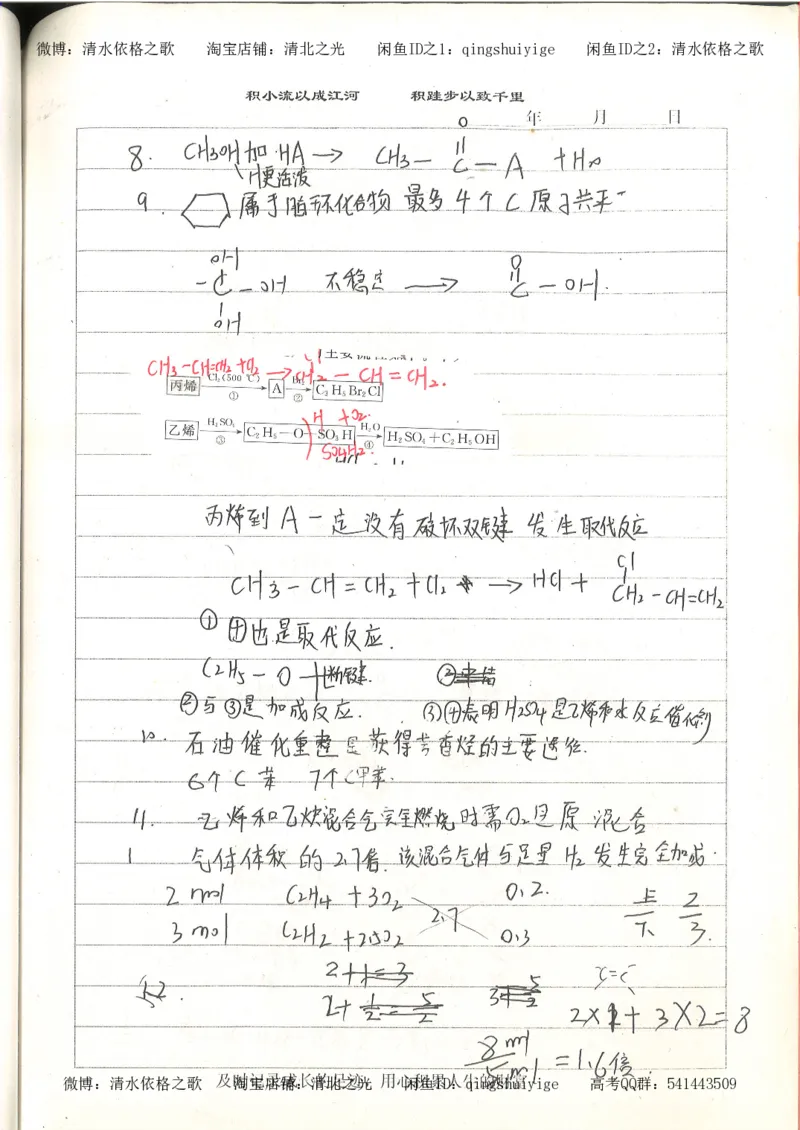 微博：清水依格之歌 淘宝店铺：清北之光 闲鱼ID之1：qingshuiyige 闲鱼ID之2：清水依格之歌
积小流以成江河 积跬步以致千里
年 月 日
O
8. CH3OH加HA → CH3－C－A ＋H2O
H更活泼
9. 属于脂环化合物 最多4个C原子共平
OH O
－C－OH 不稳定 → C－OH.
OH
CH3－CH=CH2 ＋Cl2 → CH2－CH=CH2.
丙烯 Cl2(500 ℃) ① A Br2 ② C3H5Br2Cl
H
乙烯 H2SO4 ③ C2H5－O－SO3H H2O ④ H2SO4＋C2H5OH
SO4H2
丙烯到A一定没有破坏双键 发生取代反应
Cl
CH3－CH=CH2＋Cl2 → HCl＋ CH2－CH=CH2
① ④也是取代反应.
C2H5－O 断键.
②与③是加成反应. ③④表明H2SO4是乙烯和水反应催化剂
10. 石油催化重整是获得芳香烃的主要途径.
6个C苯 7个C甲苯.
11. 乙烯和乙炔混合气完全燃烧时需O2是原混合
气体体积的2.7倍. 该混合气体与足量H2发生完全加成.
2 mol C2H4＋3O2 0.2. 上 2
2.7
3 mol C2H2＋2.5O2 0.3 下 3.
2＋1=3
2＋1/2=5/2 2×1＋3×2=8
8 ml/5 ml =1.6倍
微博：清水依格之歌 淘宝店铺：清北之光 闲鱼ID：qingshuiyige 高考QQ群：541443509